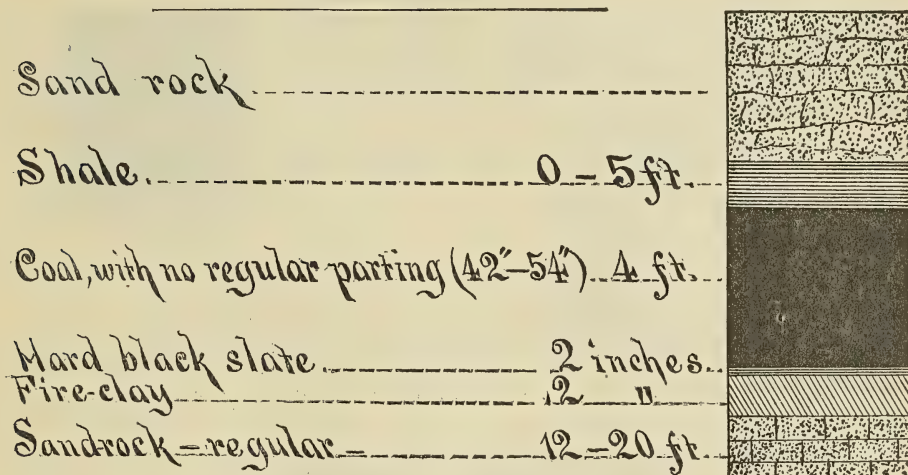 Sand rock
Shale. 0 – 5 ft.
Coal, with no regular parting (42"–54") 4 ft.
Hard black slate. 2 inches.
Fire-clay 12 "
Sandrock – regular – 12 – 20 ft.